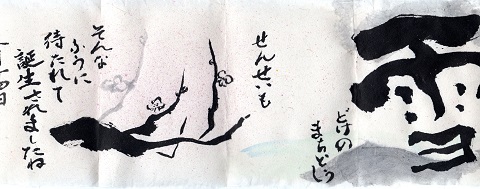 雪
どけの
まちどうし
せんせいも
そんな
ふうに
待たれて
誕生されましたね